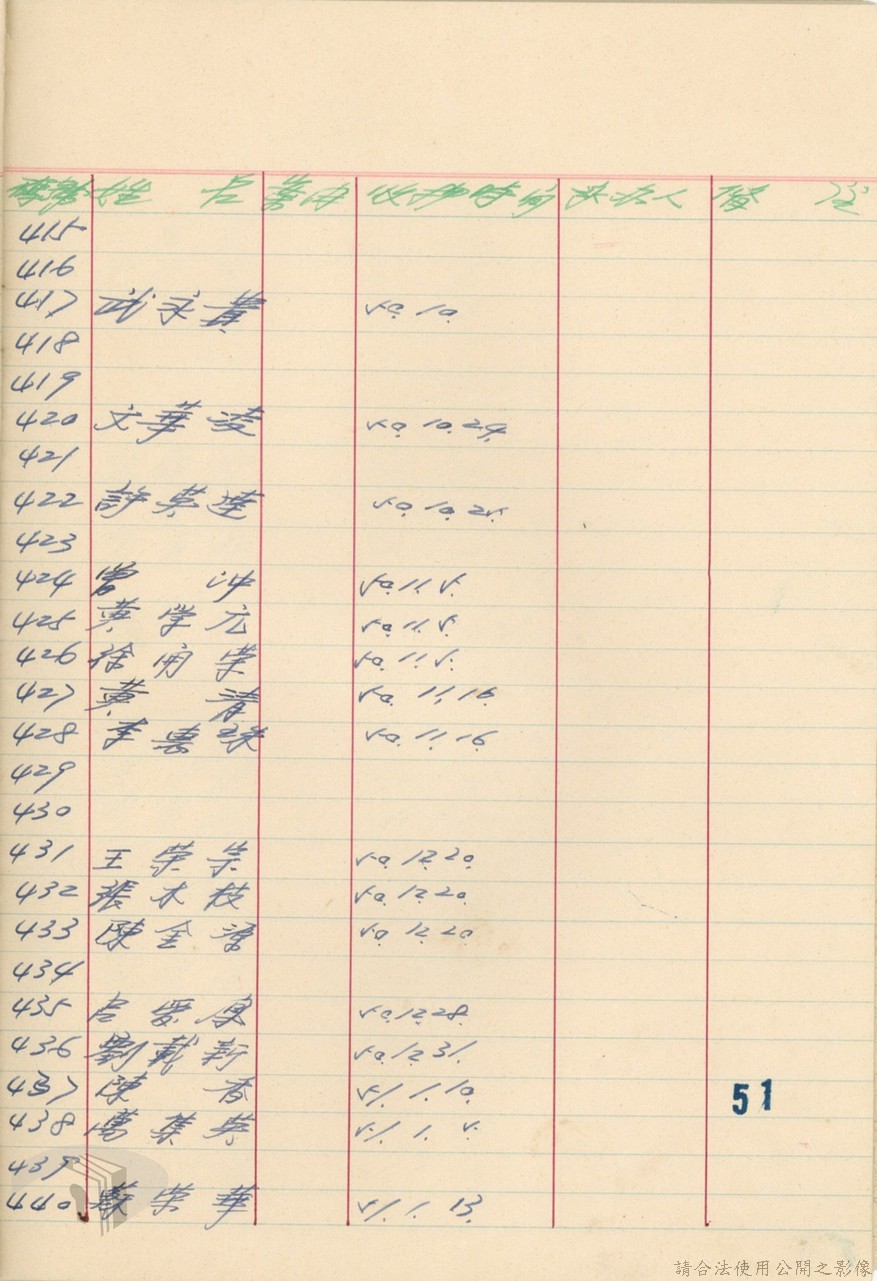 姓名 案由 收押時間 承办人 備註
415
416
417 武永貴 50.10.
418
419
420 文華凌 50.10.24.
421
422 許英達 50.10.25.
423
424 曾冲 50.11.5.
425 黄學元 50.11.5.
426 徐開榮 50.11.5.
427 黄清 50.11.16.
428 李惠珠 50.11.16.
429
430
431 王榮 50.12.20.
432 張木枝 50.12.20.
433 陳金 50.12.20.
434
435 呂愛 50.12.28.
436 劉戴新 50.12.31.
437 陳香 51.1.10.
438 萬集英 51.1.5.
439
440 蘇榮華 51.1.13.
51
請合法使用公開之影像